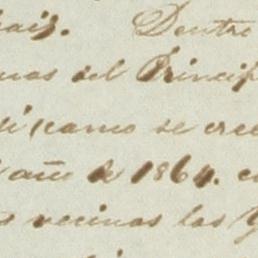 pais. Dentro
mas del Princip
como se cree
año de 1864. e
s vecinas las